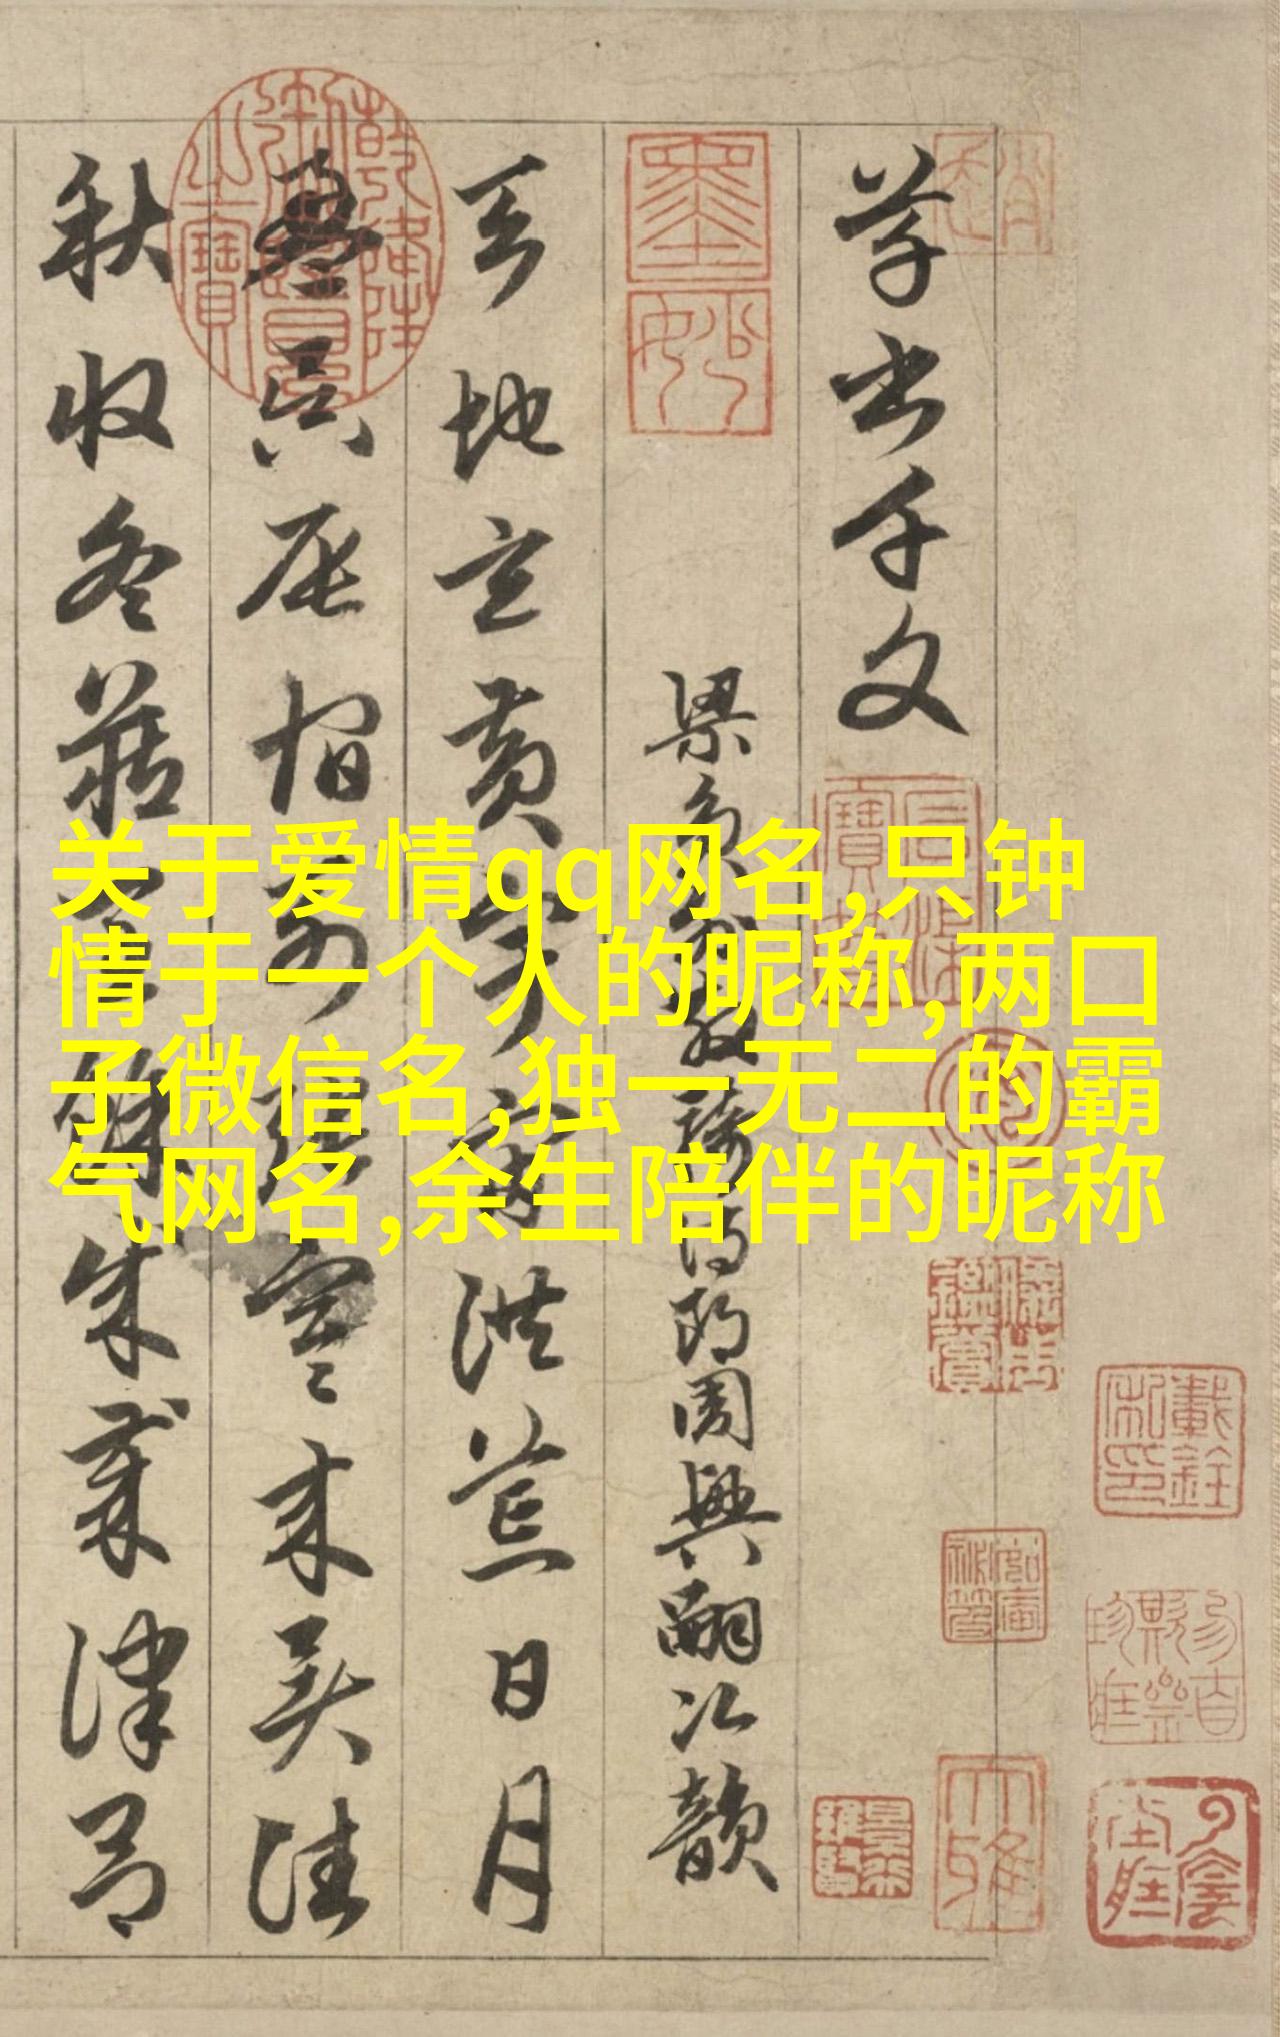 草书千文
梁員外散騎侍郎周興嗣次韻
天地玄黄宇宙洪荒日月
盈昃辰宿列張寒来暑往
秋收冬蔵閏餘成歲律吕
关于爱情qq网名,只钟
情于一个人的昵称,两口
子微信名,独一无二的霸
气网名,余生陪伴的昵称